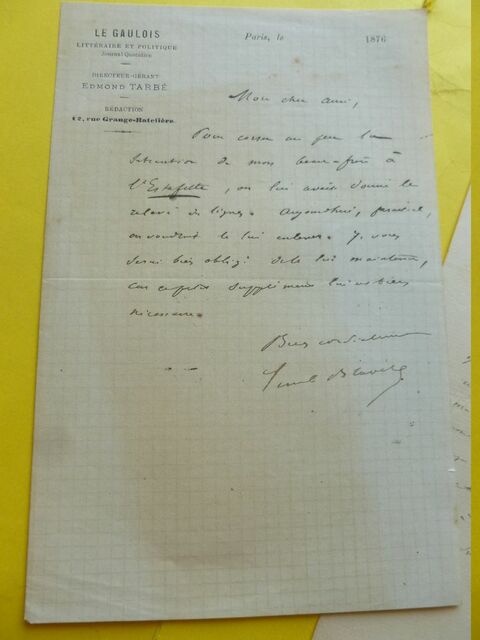 LE GAULOIS
LITTÉRAIRE ET POLITIQUE
Journal Quotidien
DIRECTEUR-GÉRANT
EDMOND TARBÉ
RÉDACTION
12, rue Grange-Batelière
Paris, le 1876
Mon cher ami,
Pour corser un peu la
situation de mon beau-frère à
l'Estafette, on lui avait donné le
relevé de lignes. Aujourd'hui, paraît-il,
on voudrait le lui enlever. Je vous
serai bien obligé de le lui maintenir,
car ce petit supplément lui est bien
nécessaire.
Bien cordialement